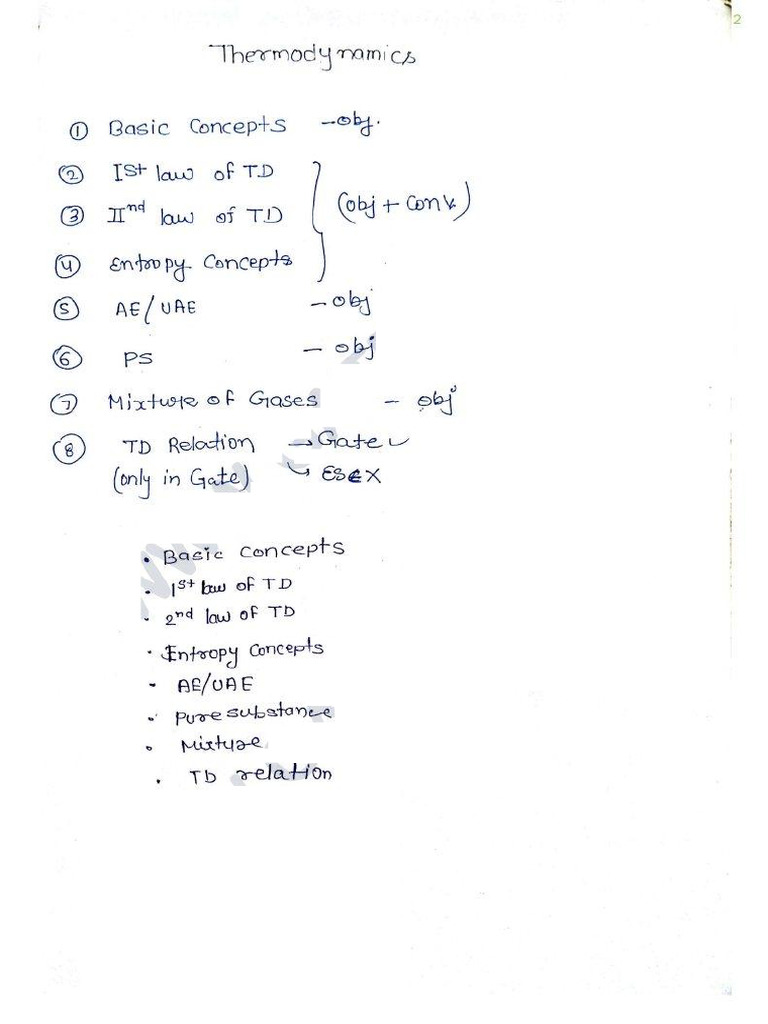 2
Thermodynamics
① Basic Concepts - obj.
② Ist law of TD
③ IInd law of TD (obj + Conv.)
④ Entropy Concepts
⑤ AE/UAE - obj
⑥ PS - obj
⑦ Mixture of Gases - obj
⑧ TD Relation → Gate ✓
(only in Gate) ↳ ESE X
• Basic concepts
• 1st law of TD
• 2nd law of TD
• Entropy Concepts
- AE/UAE
• Pure substance
• Mixture
• TD relation